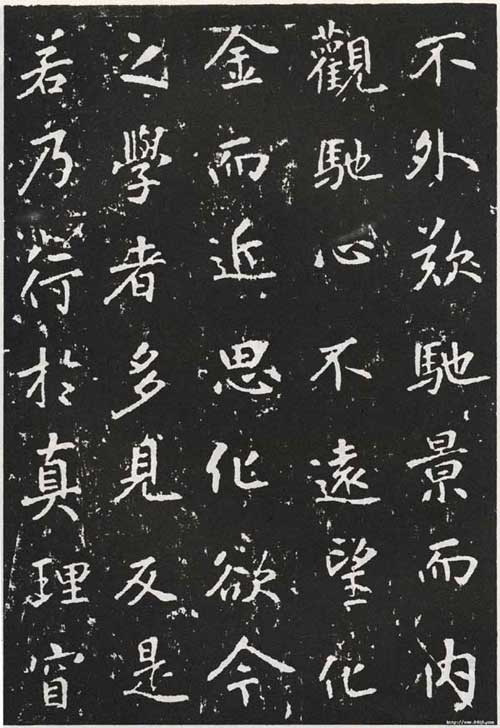 不外歎馳景而内
觀馳心不遠望化
金而近思化欲今
之學者多見反是
若乃行於真理窅